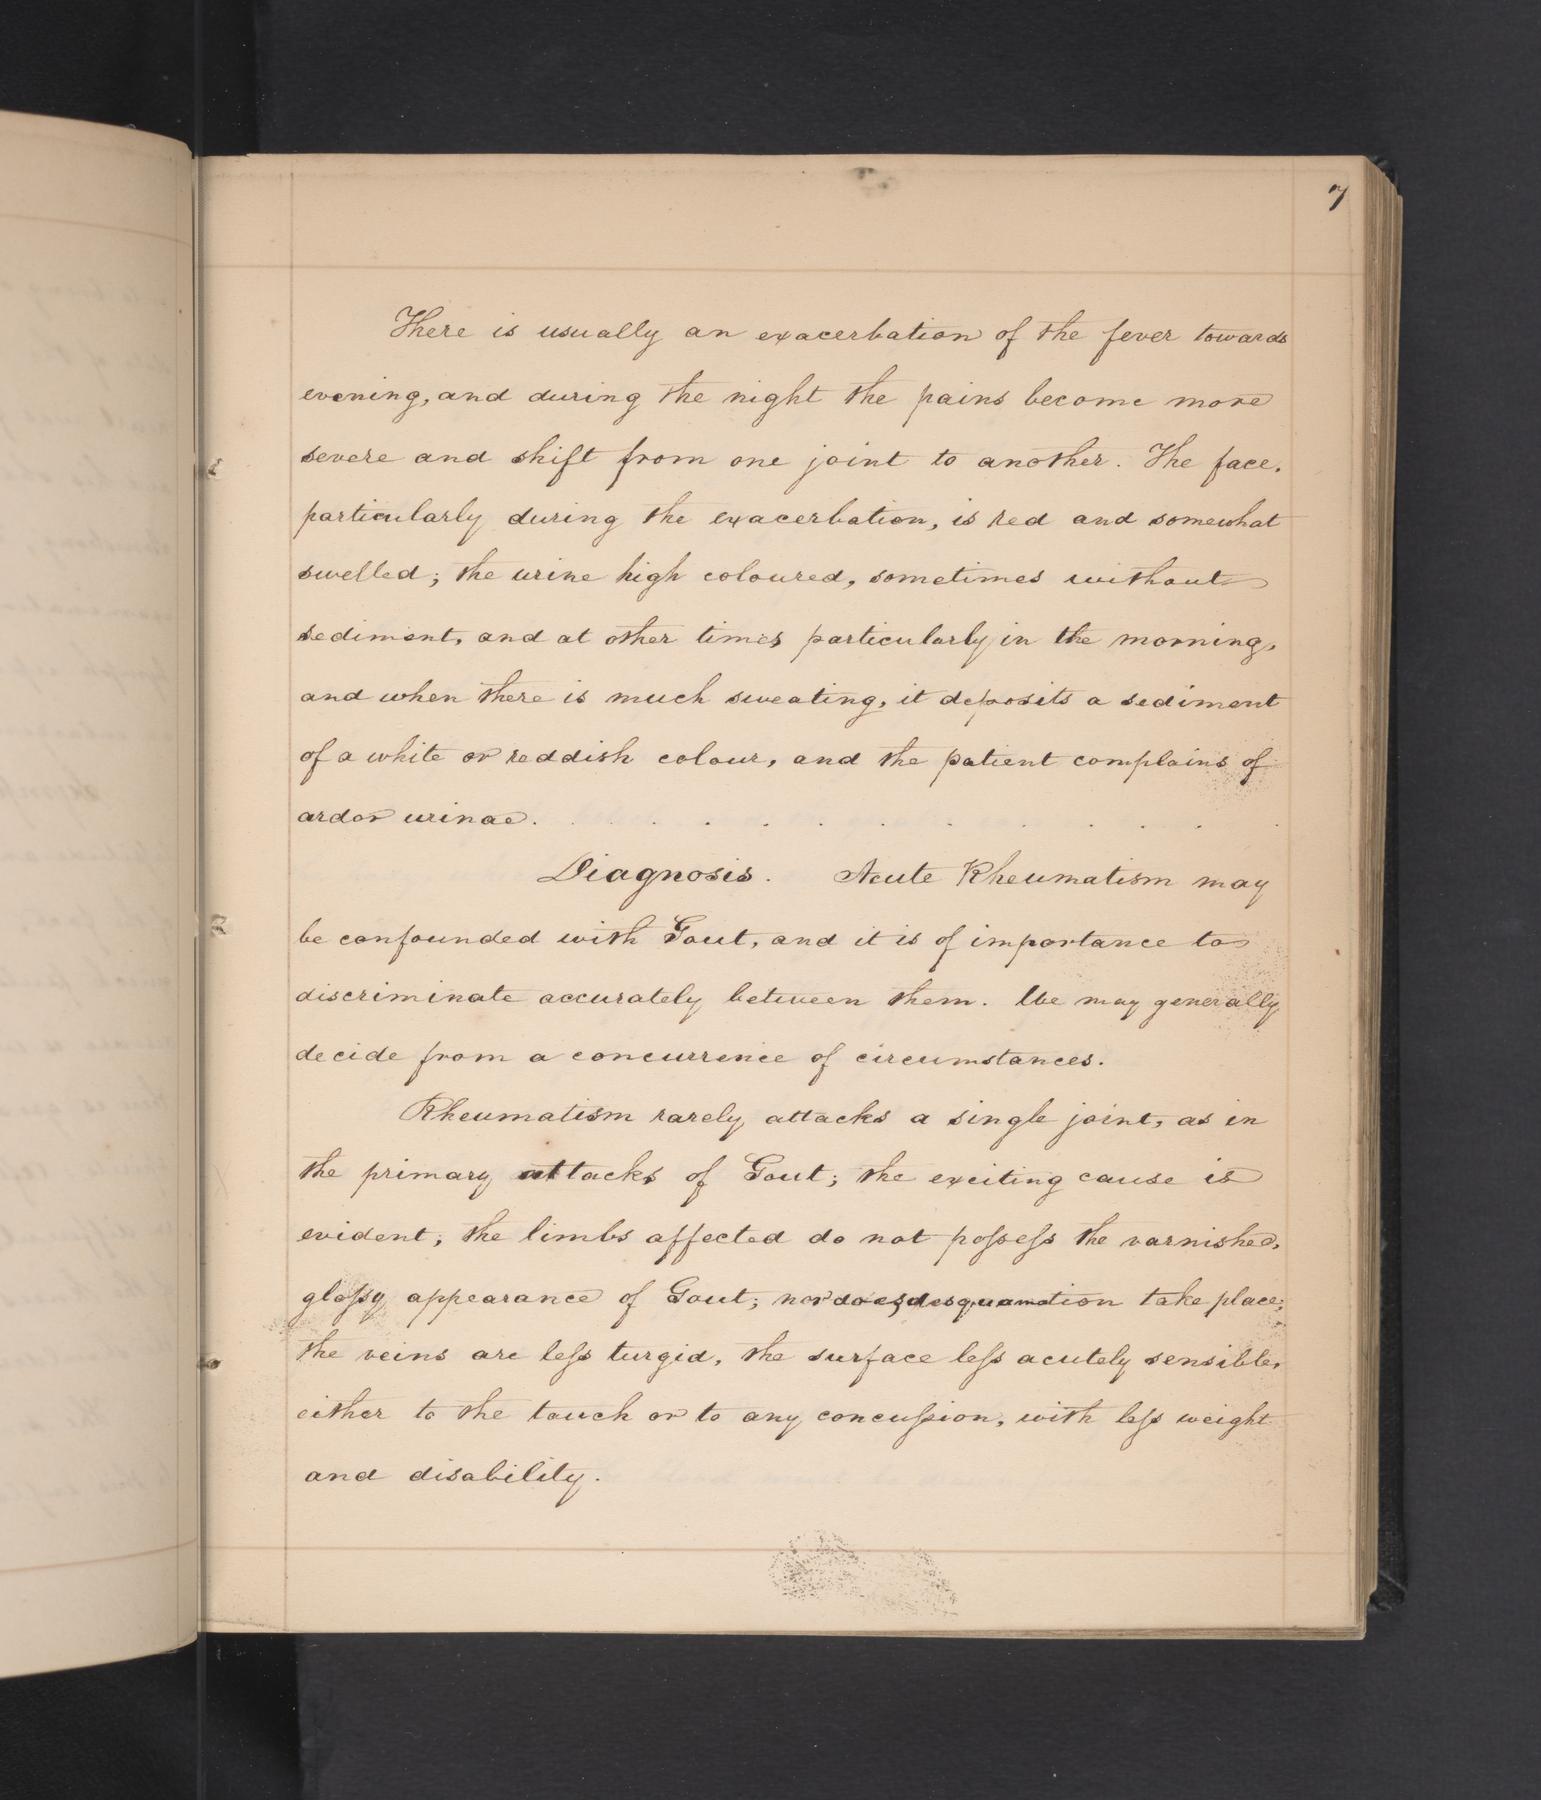 7
There is usually an exacerbation of the fever towards
evening, and during the night the pains become more
severe and shift from one joint to another. The face,
particularly during the exacerbation, is red and somewhat
swelled; the urine high coloured, sometimes without
sediment, and at other times particularly in the morning,
and when there is much sweating, it deposits a sediment
of a white or reddish colour, and the patient complains of
ardor urinae. . . . . . . . . . . .
Diagnosis. Acute Rheumatism may
be confounded with Gout, and it is of importance to
discriminate accurately between them. We may generally
decide from a concurrence of circumstances.
Rheumatism rarely attacks a single joint, as in
the primary attacks of Gout; the exciting cause is
evident; the limbs affected do not poſseſs the varnished,
gloſsy appearance of Gout; nor does desquamation take place;
the veins are leſs turgid, the surface leſs acutely sensible,
either to the touch or to any concuſsion, with leſs weight
and disability.